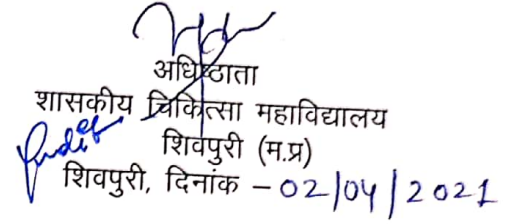 अधिष्ठाता
शासकीय चिकित्सा महाविद्यालय
शिवपुरी (म.प्र)
शिवपुरी, दिनांक – 02/04/2021